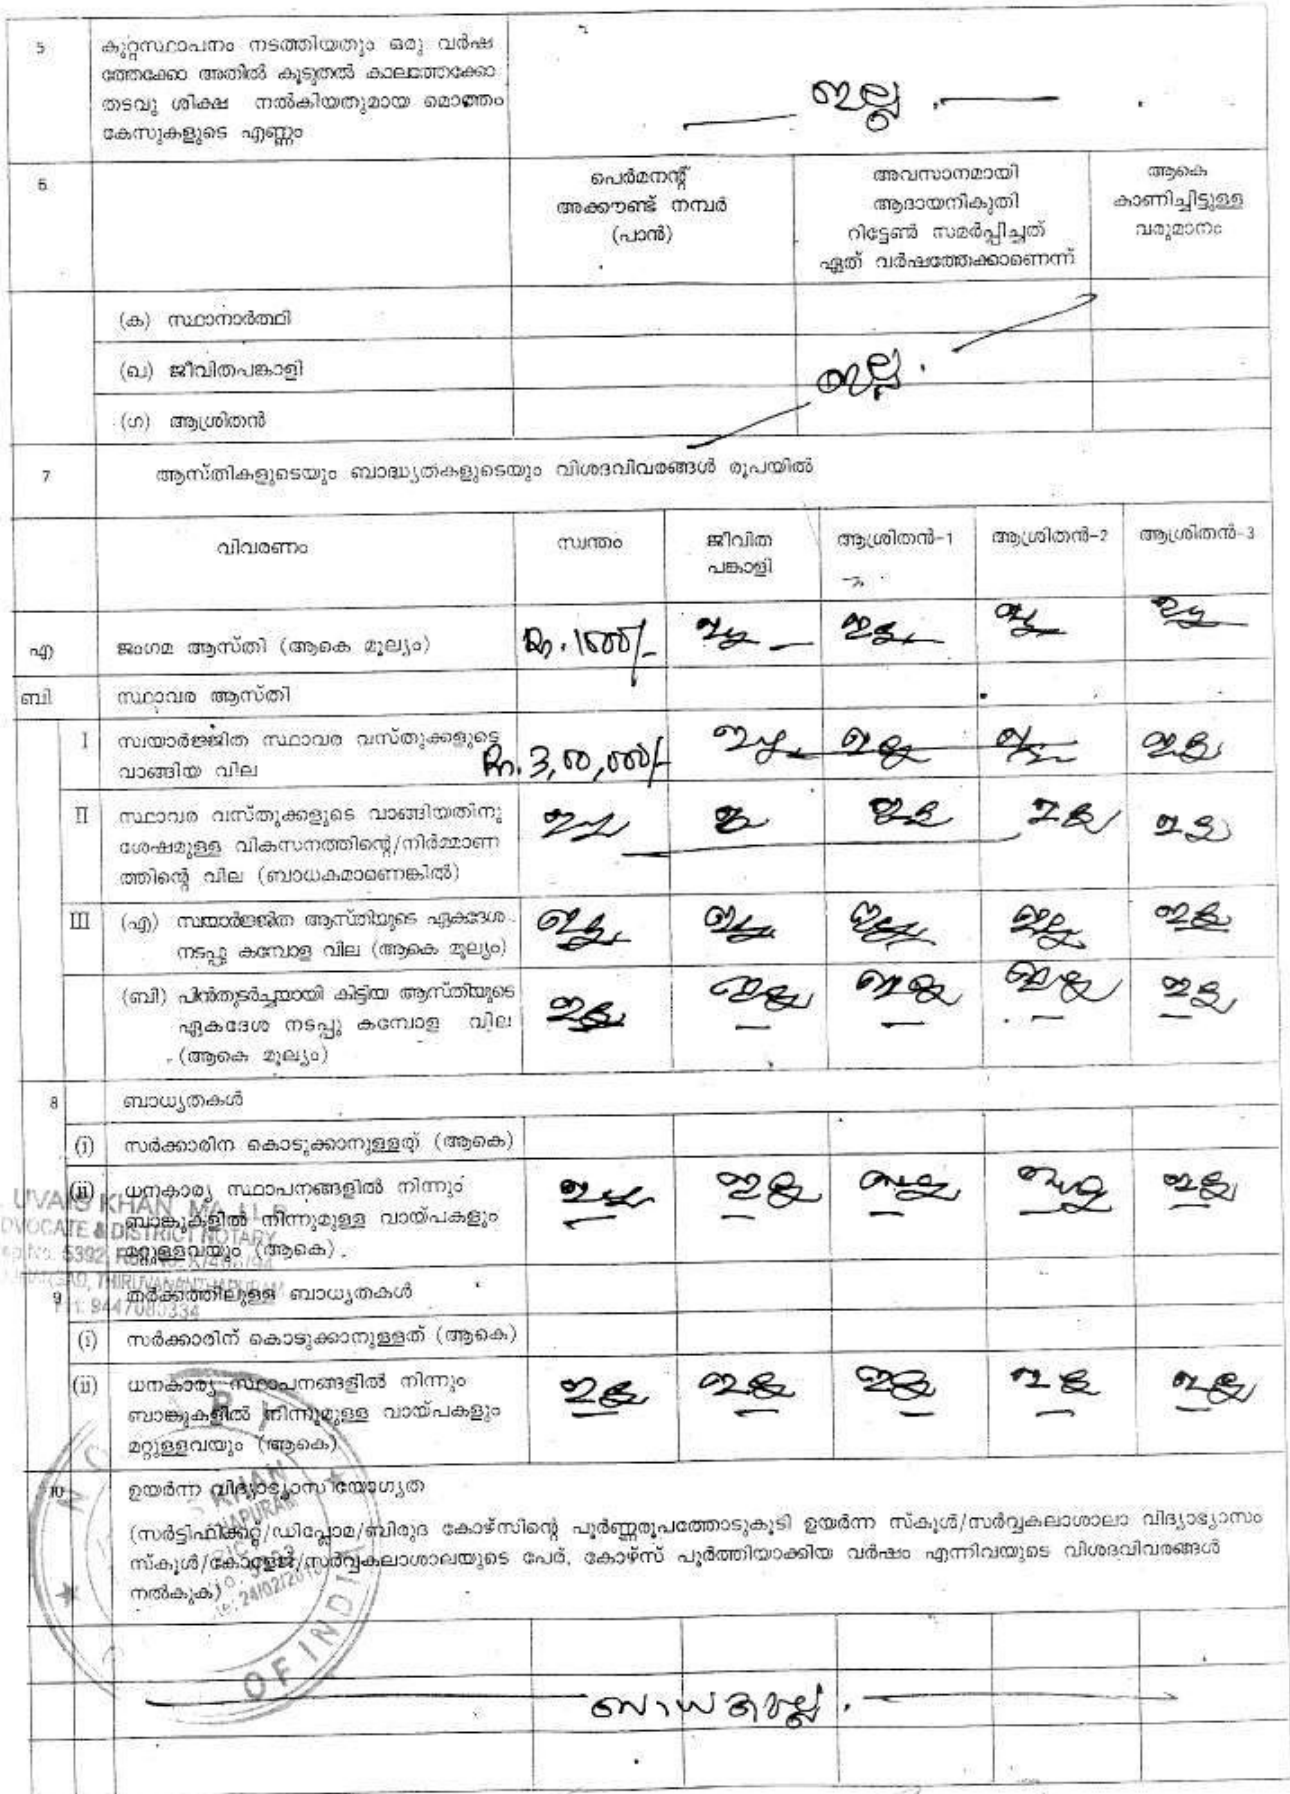 5 കുറ്റസ്ഥാപനം നടത്തിയതും ഒരു വർഷ
ത്തേക്കോ അതിൽ കൂടുതൽ കാലത്തേക്കോ
തടവു ശിക്ഷ നൽകിയതുമായ മൊത്തം
കേസുകളുടെ എണ്ണം
ഇല്ല.
6 പെർമനന്റ്
അക്കൗണ്ട് നമ്പർ
(പാൻ)
അവസാനമായി
ആദായനികുതി
റിട്ടേൺ സമർപ്പിച്ചത്
ഏത് വർഷത്തേക്കാണെന്ന്
ആകെ
കാണിച്ചിട്ടുള്ള
വരുമാനം
(ക) സ്ഥാനാർത്ഥി
(ഖ) ജീവിതപങ്കാളി
ഇല്ല.
(ഗ) ആശ്രിതൻ
7 ആസ്തികളുടെയും ബാദ്ധ്യതകളുടെയും വിശദവിവരങ്ങൾ രൂപയിൽ
വിവരണം സ്വന്തം ജീവിത
പങ്കാളി
ആശ്രിതൻ-1 ആശ്രിതൻ-2 ആശ്രിതൻ-3
എ ജംഗമ ആസ്തി (ആകെ മൂല്യം) Rs. 1000/- ഇല്ല ഇല്ല ഇല്ല ഇല്ല
ബി സ്ഥാവര ആസ്തി
I സ്വയാർജ്ജിത സ്ഥാവര വസ്തുക്കളുടെ
വാങ്ങിയ വില
Rs. 3,00,000/- ഇല്ല ഇല്ല ഇല്ല ഇല്ല
II സ്ഥാവര വസ്തുക്കളുടെ വാങ്ങിയതിനു
ശേഷമുള്ള വികസനത്തിന്റെ/നിർമ്മാണ
ത്തിന്റെ വില (ബാധകമാണെങ്കിൽ)
ഇല്ല ഇല്ല ഇല്ല ഇല്ല ഇല്ല
III (എ) സ്വയാർജ്ജിത ആസ്തിയുടെ ഏകദേശ
നടപ്പു കമ്പോള വില (ആകെ മൂല്യം)
ഇല്ല ഇല്ല ഇല്ല ഇല്ല ഇല്ല
(ബി) പിൻതുടർച്ചയായി കിട്ടിയ ആസ്തിയുടെ
ഏകദേശ നടപ്പു കമ്പോള വില
(ആകെ മൂല്യം)
ഇല്ല ഇല്ല ഇല്ല ഇല്ല ഇല്ല
8 ബാധ്യതകൾ
(i) സർക്കാരിന കൊടുക്കാനുള്ളത് (ആകെ)
(ii) ധനകാര്യ സ്ഥാപനങ്ങളിൽ നിന്നും
ബാങ്കുകളിൽ നിന്നുമുള്ള വായ്പകളും
മറ്റുള്ളവയും (ആകെ).
ഇല്ല ഇല്ല ഇല്ല ഇല്ല ഇല്ല
UVAIS KHAN
ADVOCATE & DISTRICT NOTARY
5392
THIRUVANANTHAPURAM
9 തർക്കത്തിലുള്ള ബാധ്യതകൾ
(i) സർക്കാരിന് കൊടുക്കാനുള്ളത് (ആകെ)
(ii) ധനകാര്യ സ്ഥാപനങ്ങളിൽ നിന്നും
ബാങ്കുകളിൽ നിന്നുമുള്ള വായ്പകളും
മറ്റുള്ളവയും (ആകെ)
ഇല്ല ഇല്ല ഇല്ല ഇല്ല ഇല്ല
10 ഉയർന്ന വിദ്യാഭ്യാസ യോഗ്യത
(സർട്ടിഫിക്കറ്റ്/ഡിപ്ലോമ/ബിരുദ കോഴ്സിന്റെ പൂർണ്ണരൂപത്തോടുകൂടി ഉയർന്ന സ്കൂൾ/സർവ്വകലാശാലാ വിദ്യാഭ്യാസം
സ്കൂൾ/കോളേജ്/സർവ്വകലാശാലയുടെ പേര്, കോഴ്സ് പൂർത്തിയാക്കിയ വർഷം എന്നിവയുടെ വിശദവിവരങ്ങൾ
നൽകുക)
KHAN
OF INDIA
ബാധകമല്ല.